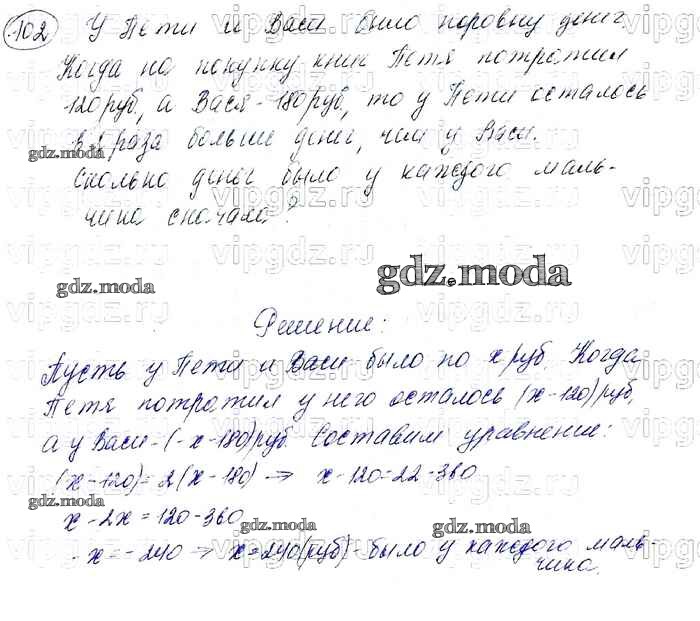 102 У Пети и Васи было поровну денег.
Когда на покупку книг Петя потратил
120 руб, а Вася - 180 руб, то у Пети осталось
в 2 раза больше денег, чем у Васи.
gdz.moda
Сколько денег было у каждого маль-
чика сначала?
gdz.moda
gdz.moda
Решение:
Пусть у Пети и Васи было по x руб. Когда
Петя потратил у него осталось (x-120) руб,
а у Васи - (-x-180) руб. Составим уравнение:
(x-120) = 2(x-180) → x-120=2x-360
gdz.moda
x-2x = 120-360
gdz.moda
gdz.moda
-x = -240 ⇒ x=240(руб) - было у каждого маль-
чика.